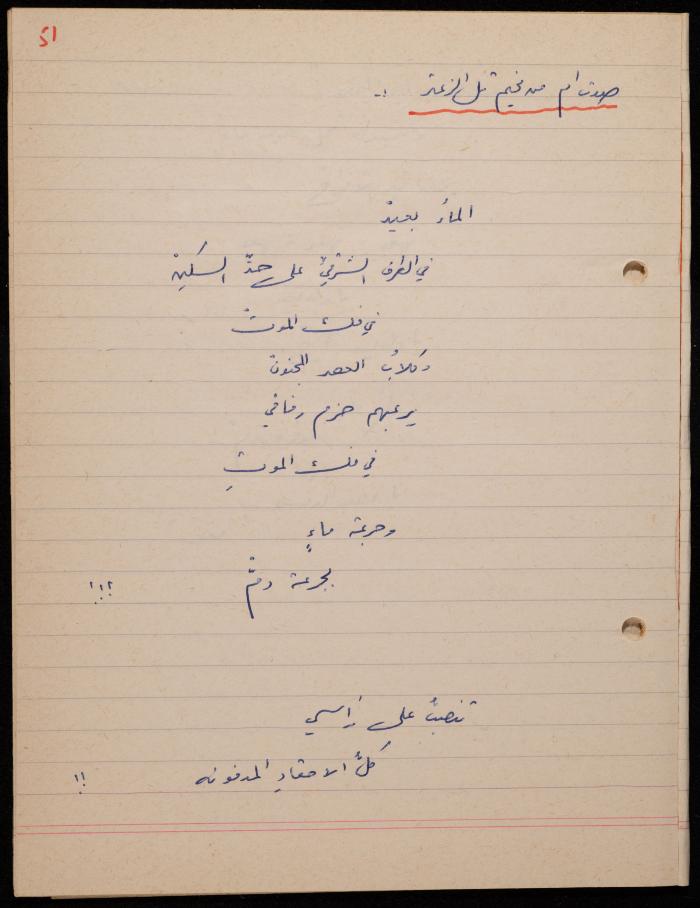 51
صوت ام من مخيم تل الزعتر :.
الماءُ بعيدْ
في الطرف الشرقيِّ على حدِّ السكينْ
في فلك الموتْ
وكلابُ العصر المجنونْ
يرعبهم حزم رفاقي
في فلك الموتِ
وجرعة ماءٍ
بجرعة دمْ !!!
تنصبُّ على رأسي
كلُّ الاحقادِ المدفونه !!